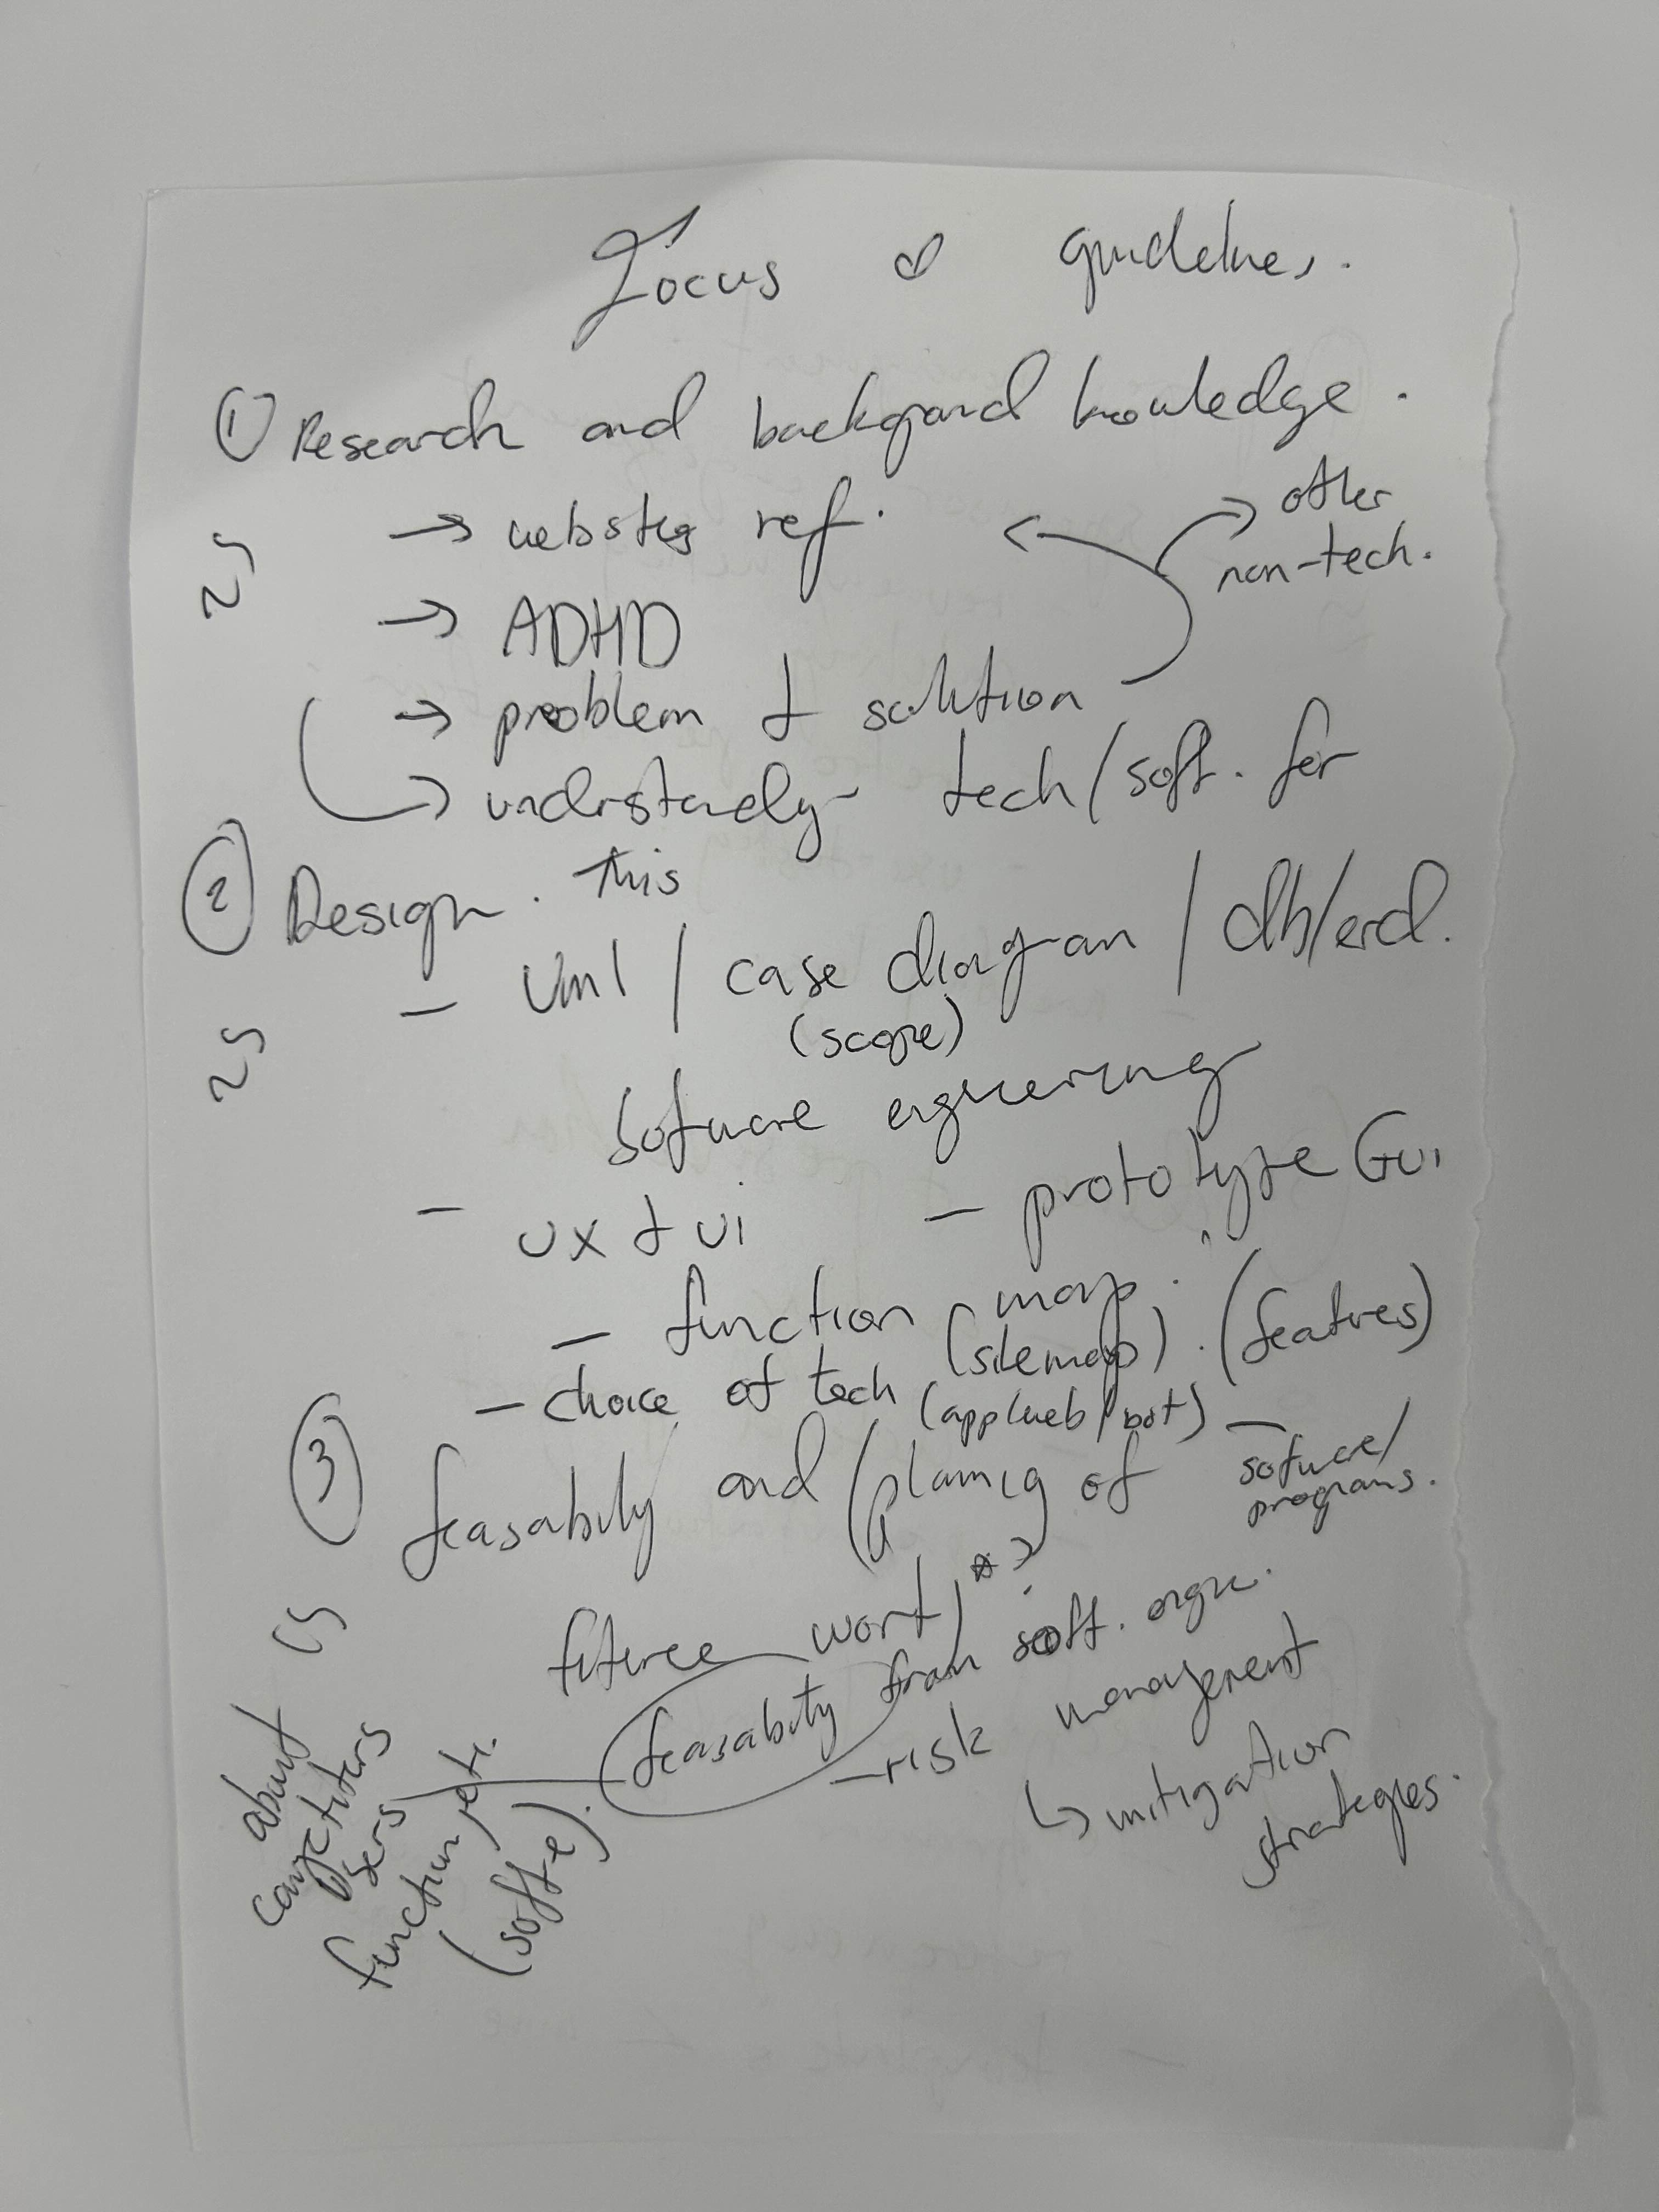 Focus & guidelines.
① Research and background knowledge.
→ websites ref.
other
non-tech.
25
→ ADHD
→ problem & solution
→ understandy tech/soft. for
this
② Design.
- Uml / case diagram / db/erd.
(scope)
25
Software engineering
- ux & ui - prototype GUI
- function map. (features)
(sitemap).
- choice of tech (app/web/bot) - sofware/
programs.
③ feasabily and (planig of
future work)*?
feasability from soft. engn.
- risk management
↳ mitigation
strategies.
about
users
function